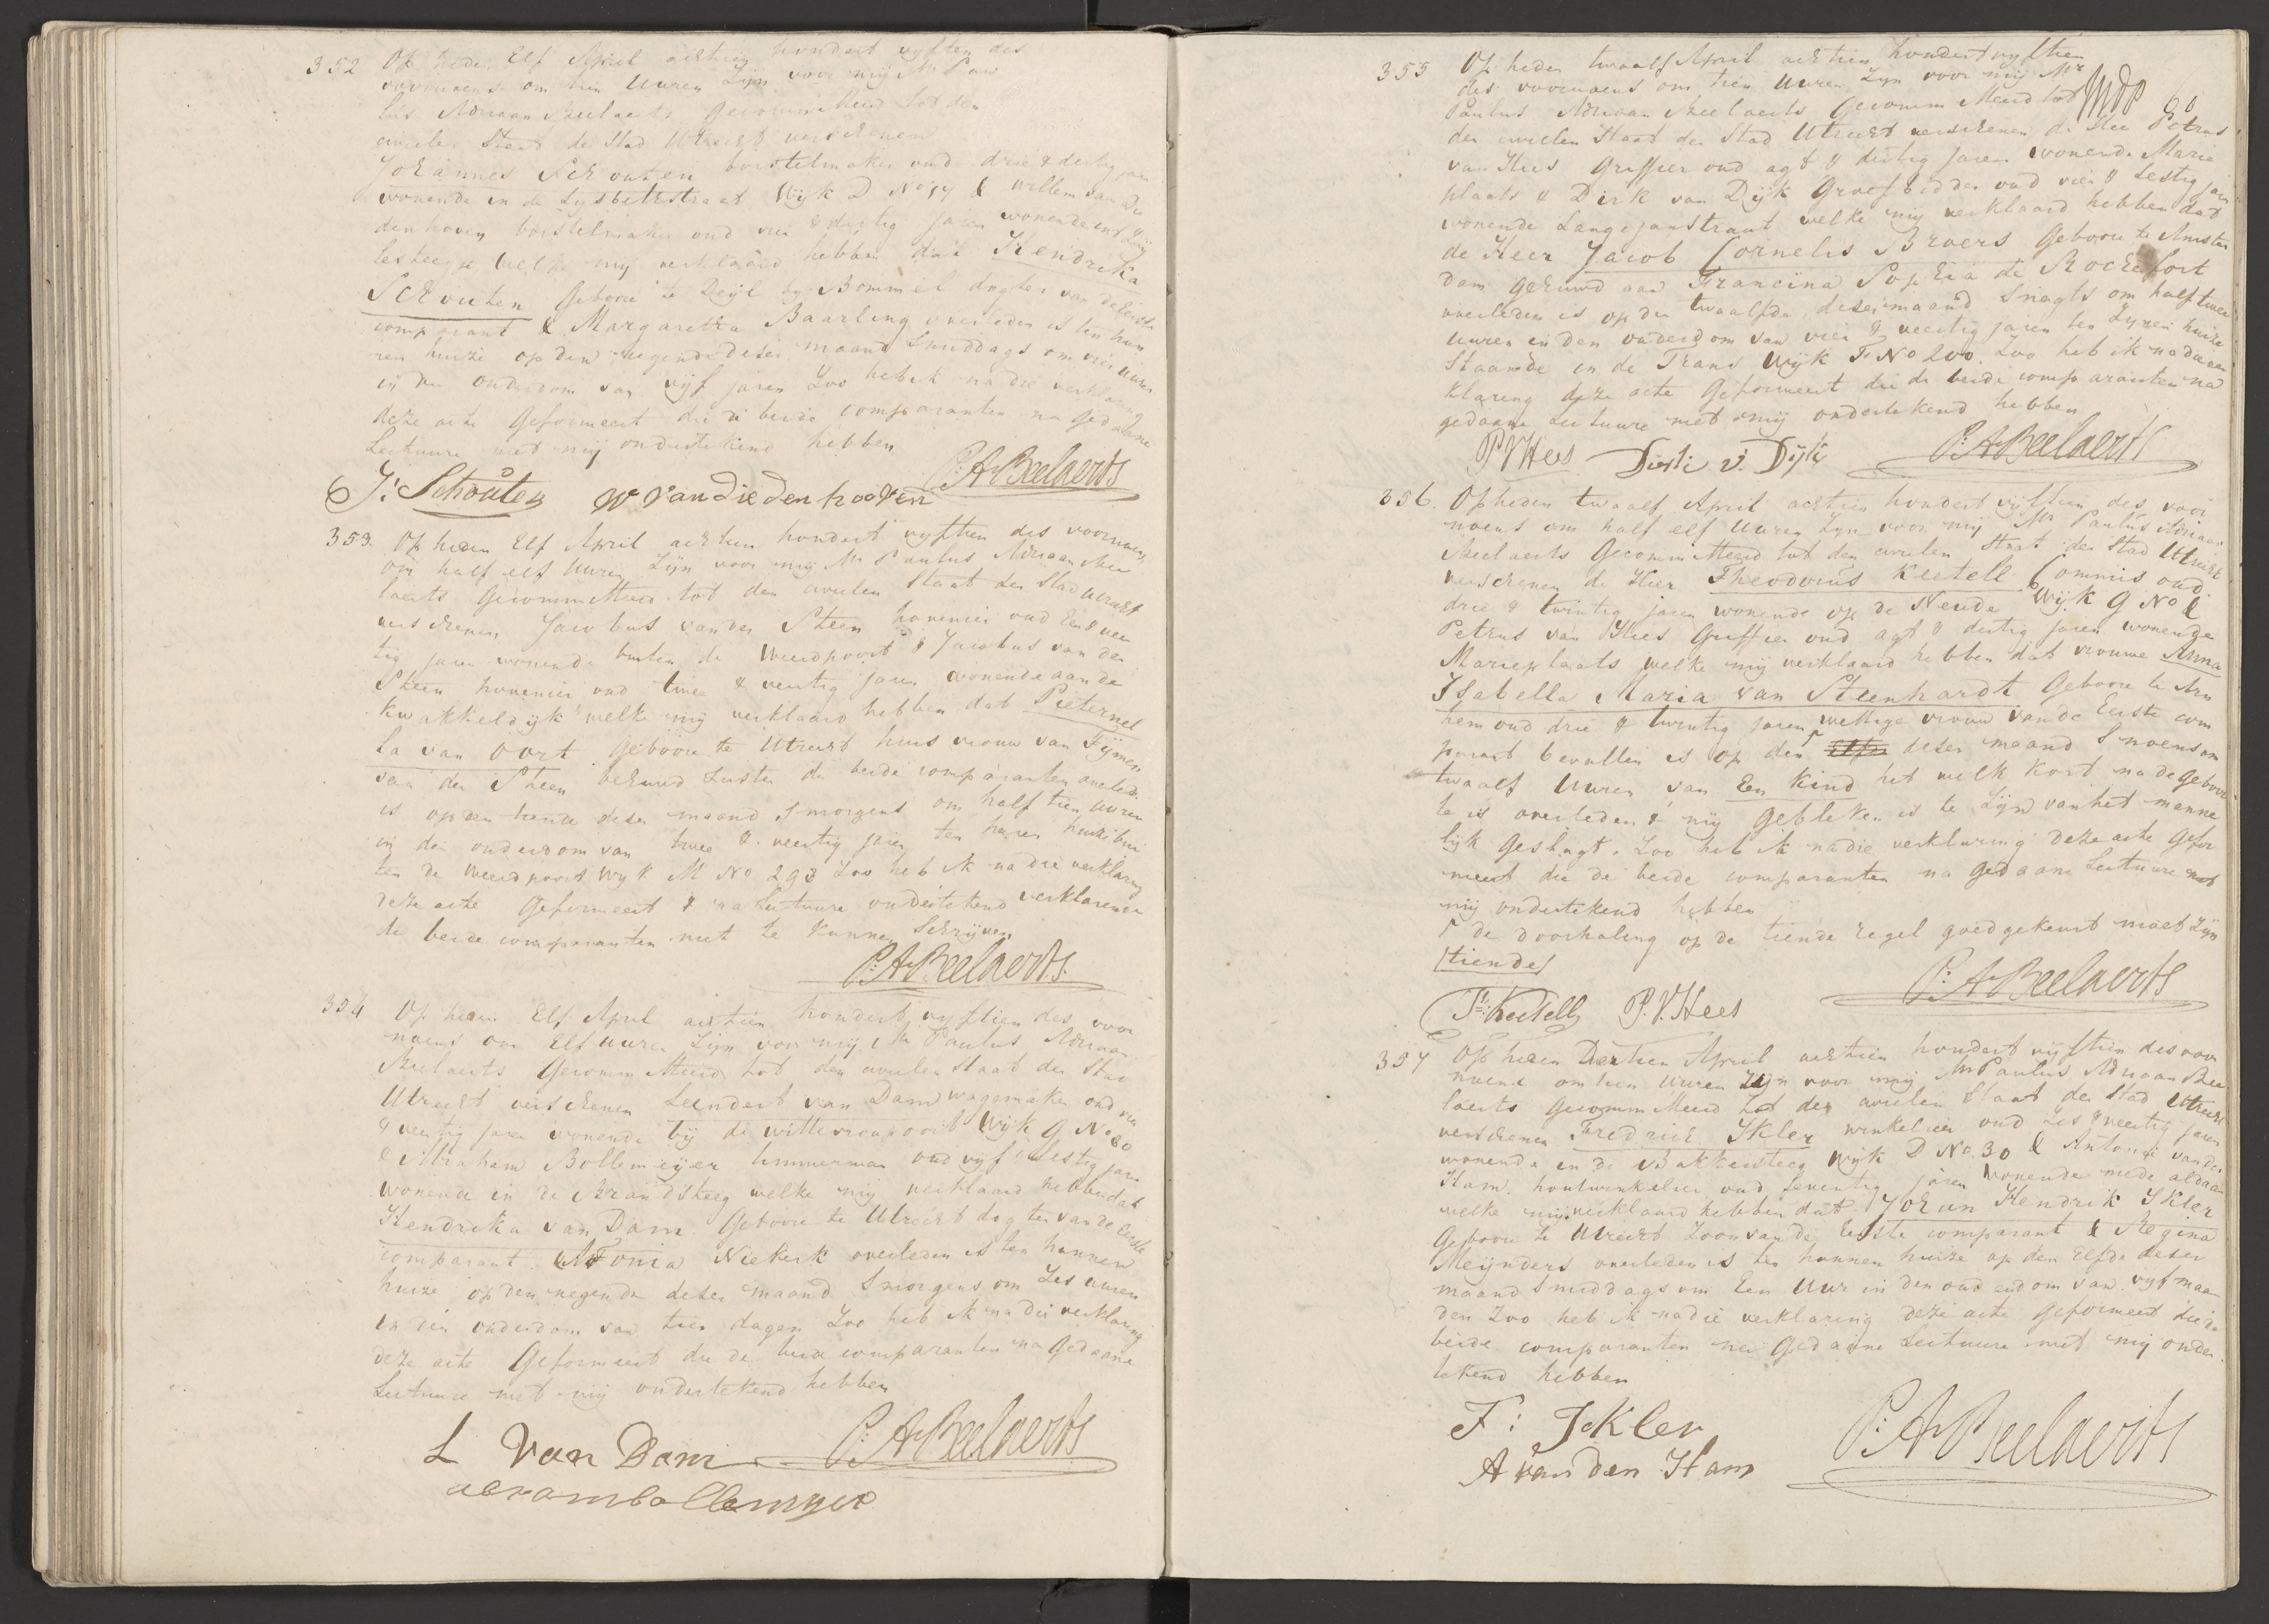 352 Op heden Elf April achtien hondert vyftien des
voornoens om tien Uuren Zijn voor mij Mr Pau
lus Adriaan Beelaerts Gecommitteerd tot den
civielen Staat der Stad Utrecht verschenen
Johannes Schouten borstelmaker oud drie & dertig jaren
wonende in de Lysbethstraat Wyk D No 17 & Willem van Die
denhoven borstelmaker oud vier & dertig jaren wonende in d
steege welke mij verklaard hebben dat Hendrika
Schouten Geboore te Deyl by Bommel dogter van de Eerste
comparant & Margaretha Baarling overleden is ten hun
nen huize op den negende deser maand Smiddags om vier uuren
in den ouderdom van vijf jaren Zoo heb ik na die verklaring
deze acte Geformeert die de beide comparanten na gedaane
Lectuure met mij ondertekend hebben
J: Schouten W van diedenhooven P: A Beelaerts
353. Op heden Elf April achtien hondert vyftien des voornoens
om half elf Uuren Zijn voor mij Mr Paulus Adriaan Bee
laerts Gecommitteerd tot den civielen Staat der Stad Utrecht
verschenen Jacobus van der Steen hovenier oud Een & veer
tig jaren wonende buiten de Weerdpoort & Jacobus van der
Steen hovenier oud twee & veertig jaren wonende aan de
Kwakkeldyk welke mij verklaard hebben dat Pieternel
la van Oort Geboore te Utrecht huis vrouw van Tymen
van der Steen behuwd Zuster der beide comparanten overleden
is op den tiende deser maand Smorgens om half tien uuren
in den ouderdom van twee & veertig jaren ten haren huize bui
ten de Weerdpoort Wyk M No 293 Zoo heb ik na die verklaring
deze acte Geformeert & na Lectuure ondertekend verklarende
de beide comparanten niet te kunnen Schryven
P: A Beelaerts.
354 Op heden Elf April achtien hondert vyftien des voor
noens om Elf uuren Zijn voor mij Mr Paulus Adriaan
Beelaerts Gecommitteerd tot den civielen Staat der Stad
Utrecht verschenen Leendert van Dam wagemaker oud vier
& veertig jaren wonende bij de wittevrouwpoort Wijk G No 80
& Abraham Bollemeyer timmerman oud vijf & Sestig jaren
wonende in de Brandsteeg welke mij verklaard hebben dat
Hendrika van Dam Geboore te Utrecht dogter van de Eerste
comparant & Antonia Niekerk overleden is ten hunnen
huize op den negende deser maand Smorgens om Zes uuren
in den ouderdom van tien dagen Zoo heb ik na die verklaring
deze acte Geformeert die de beide comparanten na Gedaane
Lectuure met mij ondertekend hebben
L Van Dam P: A Beelaerts
abrambollemyer
355 Op heden twaalf April achtien hondert vyftien
des voornoens om tien Uuren Zyn voor mij Mr
Paulus Adriaan Beelaerts Gecommitteerd tot 60
den civielen Staat der Stad Utrecht verschenen de Heer Petrus
van Hees Griffier oud agt & dertig jaren wonende Marie
plaats & Dirk van Dijk Groefbidder oud vier & Sestig jaren
wonende Langejanstraat welke mij verklaard hebben dat
de Heer Jacob Cornelis Broers Geboore te Amster
dam gehuwd aan Francina Sophia de Rochefort
overleden is op den twaalfde deser maand Snagts om half twee
Uuren in den ouderdom van vier & veertig jaren ten Zynen huize
Staande in de Trans Wijk F No 200 Zoo heb ik na die ver
klaring deze acte Geformeert die de beide comparanten na
gedaane Lectuure met mij ondertekend hebben
PVHees Dirk v. Dijk P: A Beelaerts
356. Op heden twaalf April achtien hondert vijftien des voor
noens om half elf uuren Zyn voor mij Mr Paulus Adriaan
Beelaerts Gecommitteerd tot den civielen Staat der Stad Utrecht
verschenen de Heer Theodorus Keetell Commis oud
drie & twintig jaren wonende op de Neude Wijk G No &
Petrus van Hees Griffier oud agt & dertig jaren wonende
Marieplaats welke mij verklaard hebben dat vrouwe Anna
Isabella Maria van Steenhardt Geboore te Arn
hem oud drie & twintig jaren wettige vrouw van de Eerste com
parant bevallen is op den elfde deser maand Snoens om
twaalf Uuren van Een Kind het welk kort na de geboor
te is overleden & mij gebleken is te Zijn van het manne
lijk Geslagt. Zoo heb ik na die verklaring deze acte Gefor
meert die de beide comparanten na gedaane Lectuure met
mij ondertekend hebben
de doorhaling op de tiende regel goedgekeurt moet Zijn
tiende
Th: Keetell P. V. Hees P: A Beelaerts
357 Op heden Dertien April achtien hondert vijftien des voor
noens om tien Uuren Zijn voor mij Mr Paulus Adriaan Bee
laerts Gecommitteerd tot den civielen Staat der Stad Utrecht
verschenen Fredrick Ikler winkelier oud Zes & veertig jaren
wonende in de Bakkersteeg Wyk D No. 30 & Antonij van den
Ham houtwinkelier oud Seventig jaren wonende mede aldaar
welke mij verklaard hebben dat Johan Hendrik Ikler
Geboore te Utrecht Zoon van de Eerste comparant & Regina
Meijnders overleden is ten hunnen huize op den Elfde deser
maand Smiddags om Een Uur in den ouderdom van vyf maan
den Zoo heb ik na die verklaring deze acte geformeert die de
beide comparanten na Gedaane Lectuure met mij onder
tekend hebben
F: Ikler P: A Beelaerts
A van den Ham